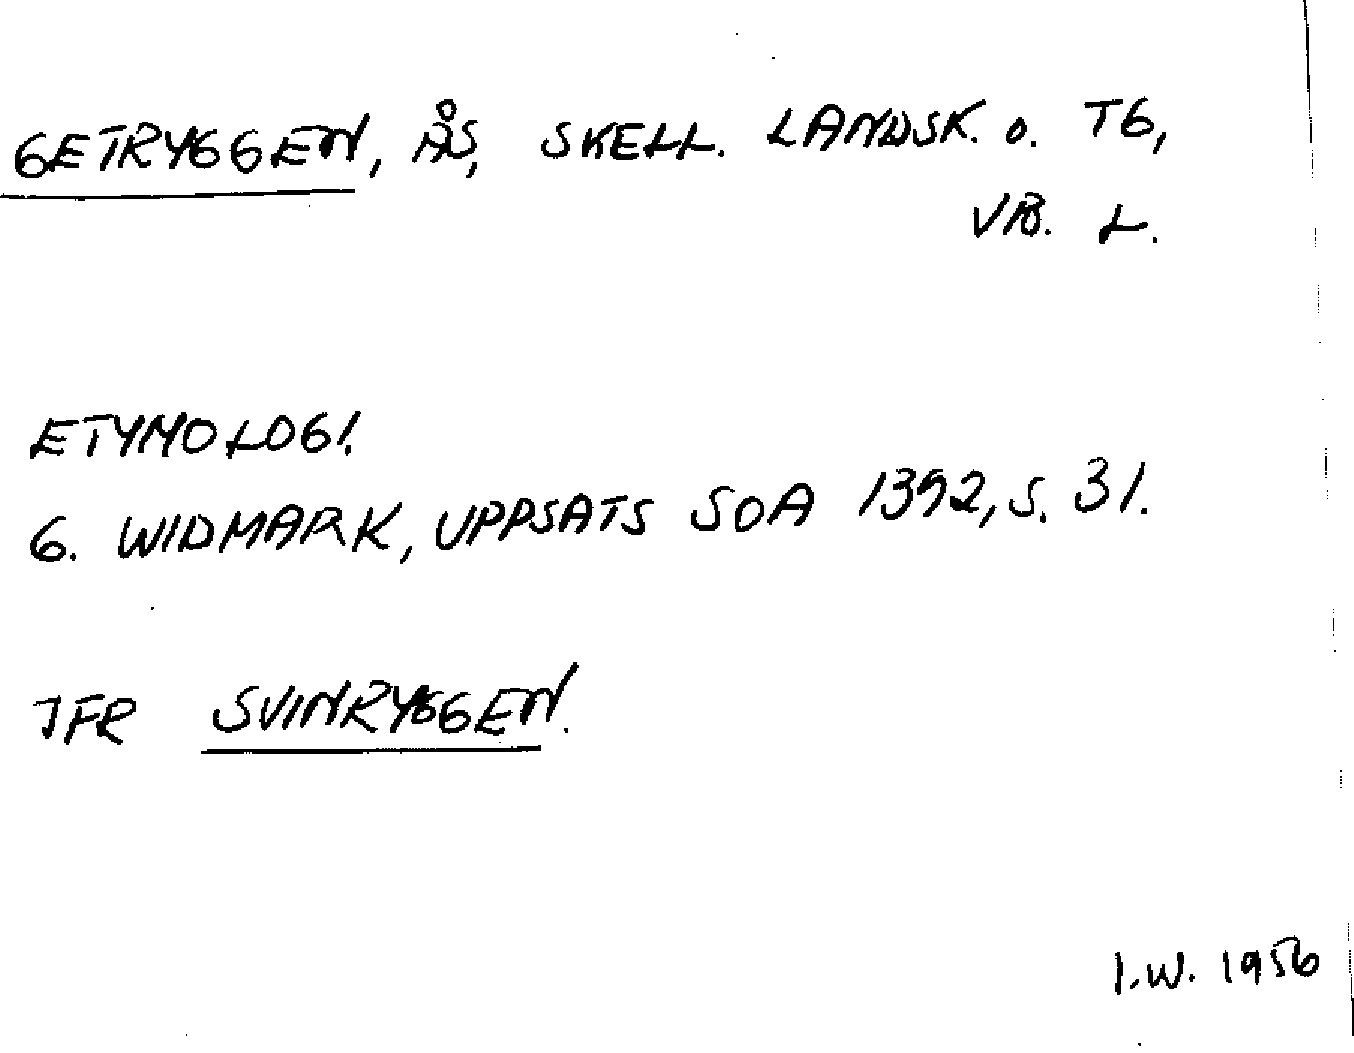 GETRYGGEN, ÅS, SKELL. LANDSK. O. TG,
VB. L.
ETYMOLOGI.
G. WIDMARK, UPPSATS SOA 1392, S. 31.
JFR SVINRYGGEN.
I.W. 1956